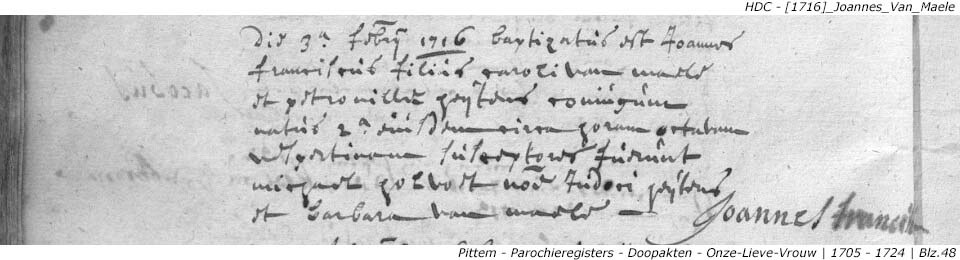 HDC - [1716]_Joannes_Van_Maele
Die 3ª febrij 1716 baptizatus est Joannes
franciscus filius caroli van maele
et petronillæ heytens coniugum
natus 2ª eiusdem circa horam octavam
vespertinam susceptores fuerunt
michael holvoet noē Judoci heytens
et barbara van maele
Joannes francis
Pittem - Parochieregisters - Doopakten - Onze-Lieve-Vrouw | 1705 - 1724 | Blz.48